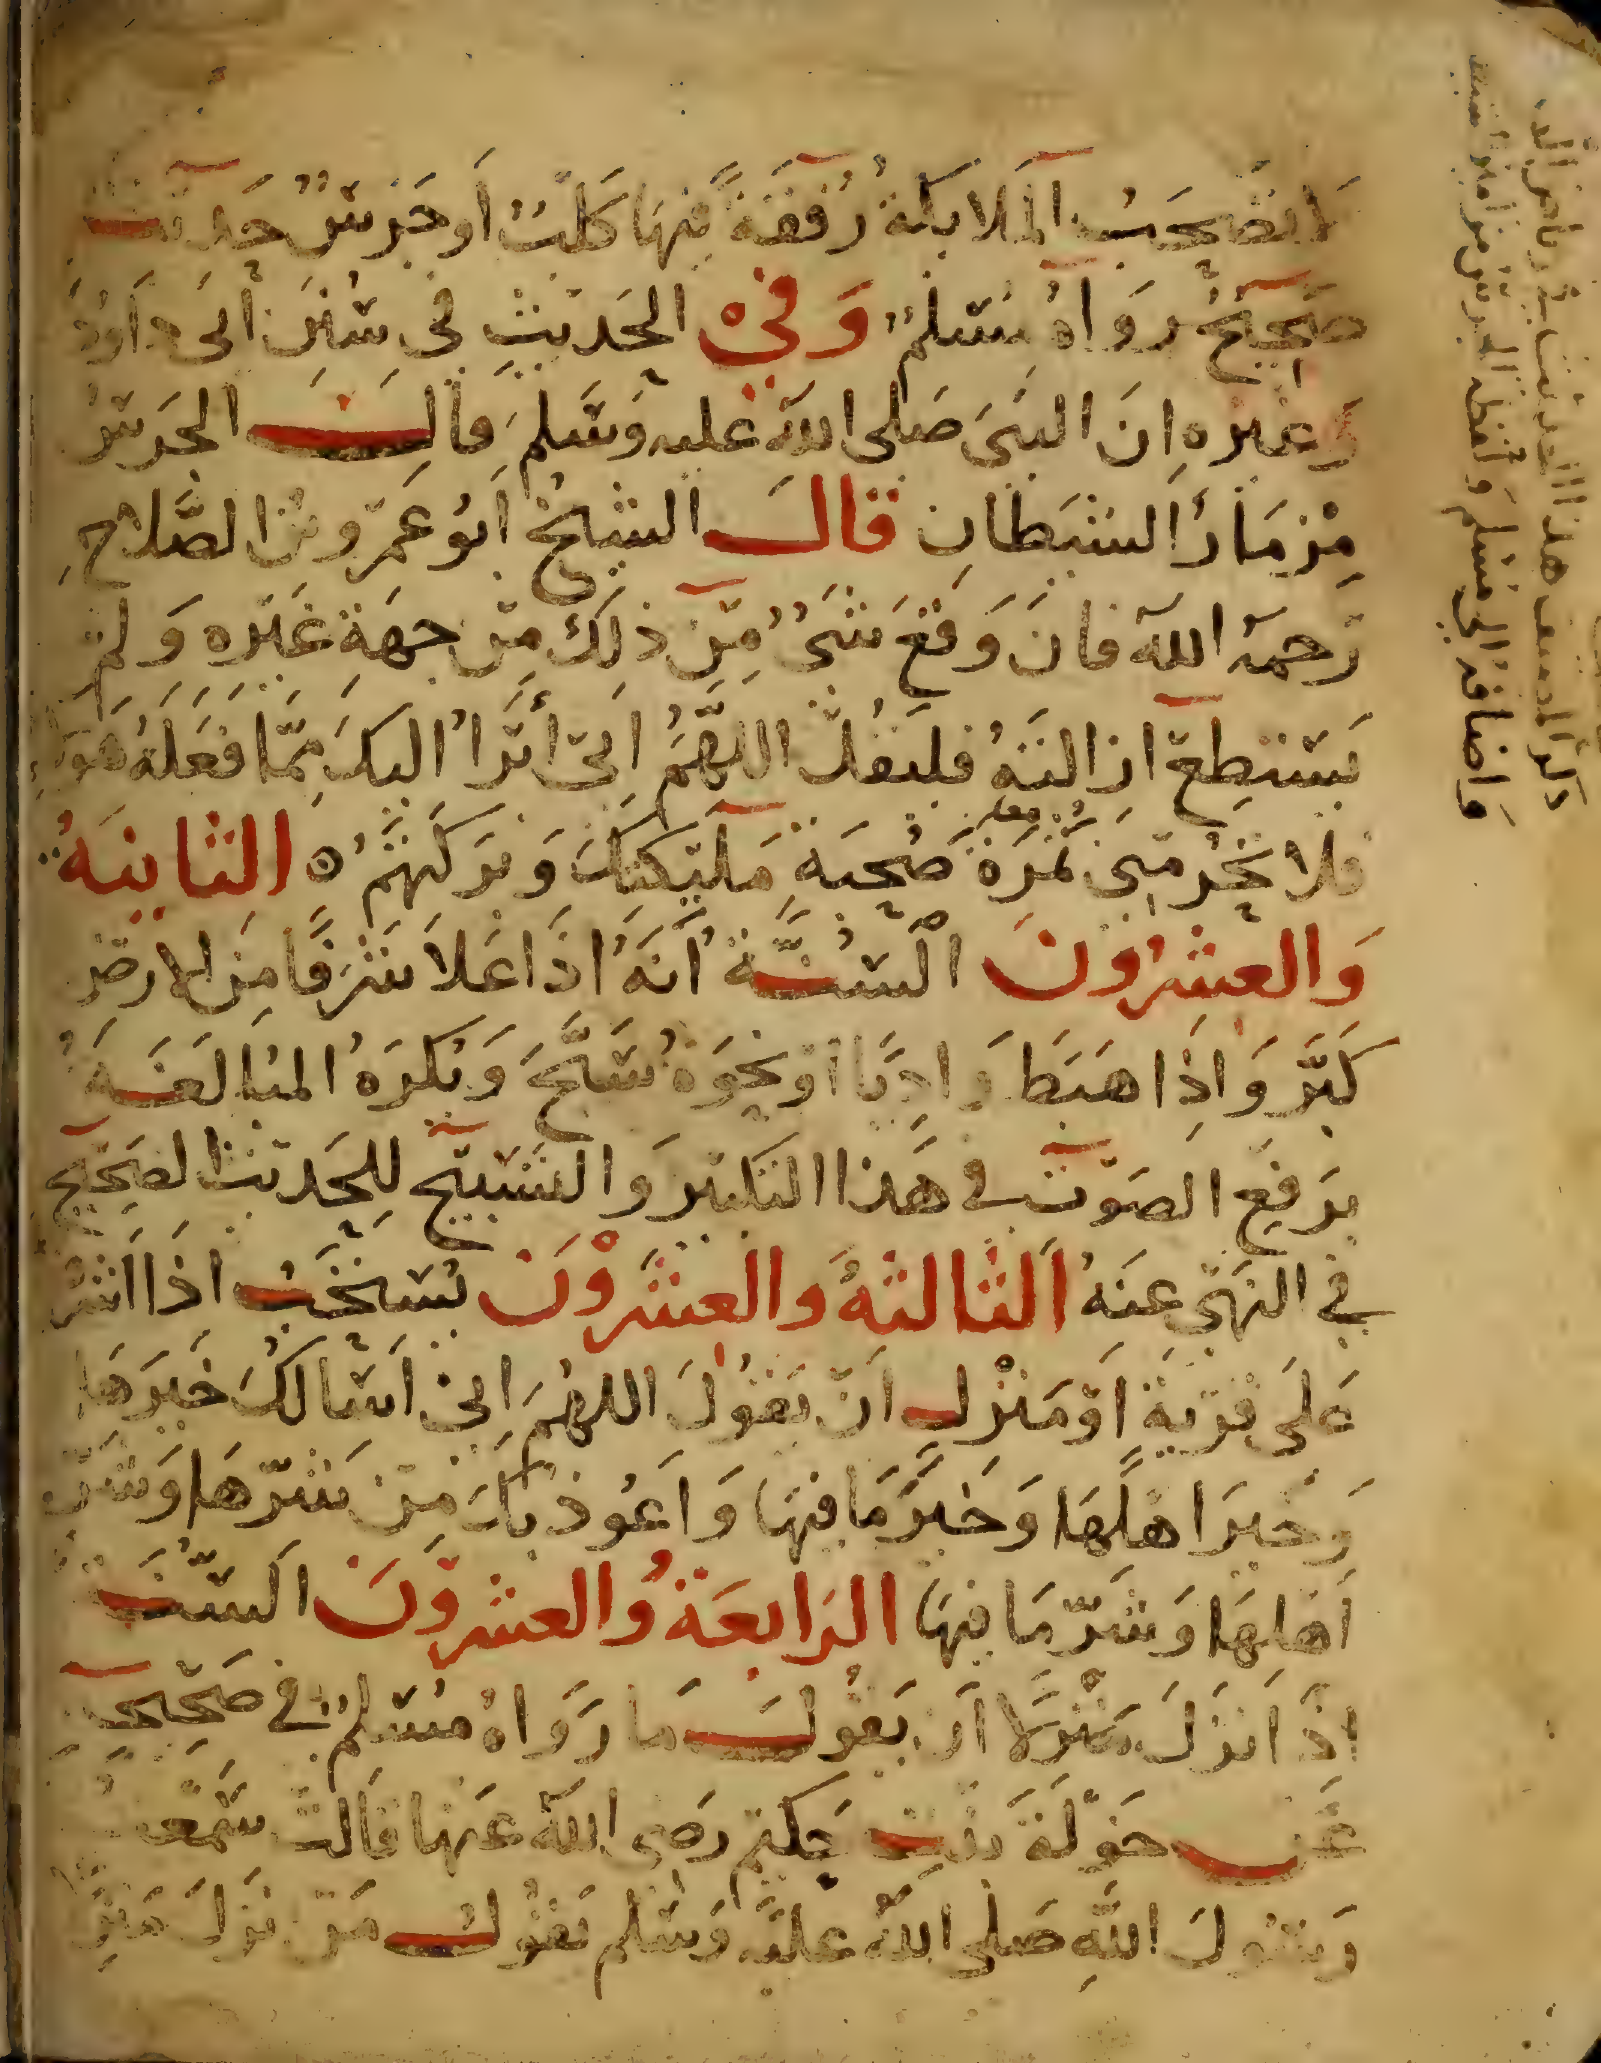 لا تصحب الملائكة رفقة فيها كلب أو جرس حديث
صحيح رواه مسلم وفي الحديث في سنن أبي داود
وغيره ان النبي صلى الله عليه وسلم قال الجرس
مزمار الشيطان قال الشيخ ابو عمرو بن الصلاح
رحمه الله فان وقع شيء من ذلك من جهة غيره ولم
يستطع ازالته فليقل اللهم اني أبرأ اليك مما فعله هولاء
فلا تحرمني ثمرة صحبة مليكتك وبركتهم ه الثانية
والعشرون السنة أنه اذا علا شرفا من الارض
كبر واذا هبط واديا أو نحوه سبح وتكره المبالغة
برفع الصوت في هذا التكبير والتسبيح للحديث الصحيح
في النهي عنه الثالثة والعشرون يستحب اذا اشرف
على قرية او منزل ان يقول اللهم اني اسالك خيرها
وخير اهلها وخير ما فيها واعوذ بك من شرها وشر
أهلها وشر ما فيها الرابعة والعشرون السنة
اذا نزل منزلا أن يقول ما رواه مسلم في صحيحه
عن خولة بنت حكيم رضي الله عنها قالت سمعت
رسول الله صلى الله عليه وسلم يقول من نزل منزلا
هذا الحديث
واضافه الى مسلم ولفظه الجرس من مزامير